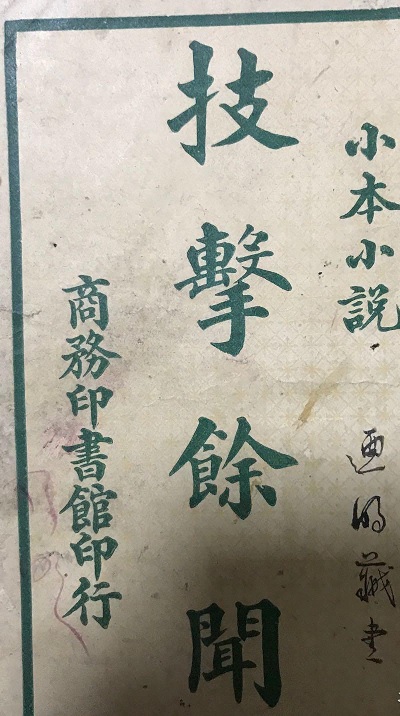 小本小説
技擊餘聞
商務印書館印行
藏書